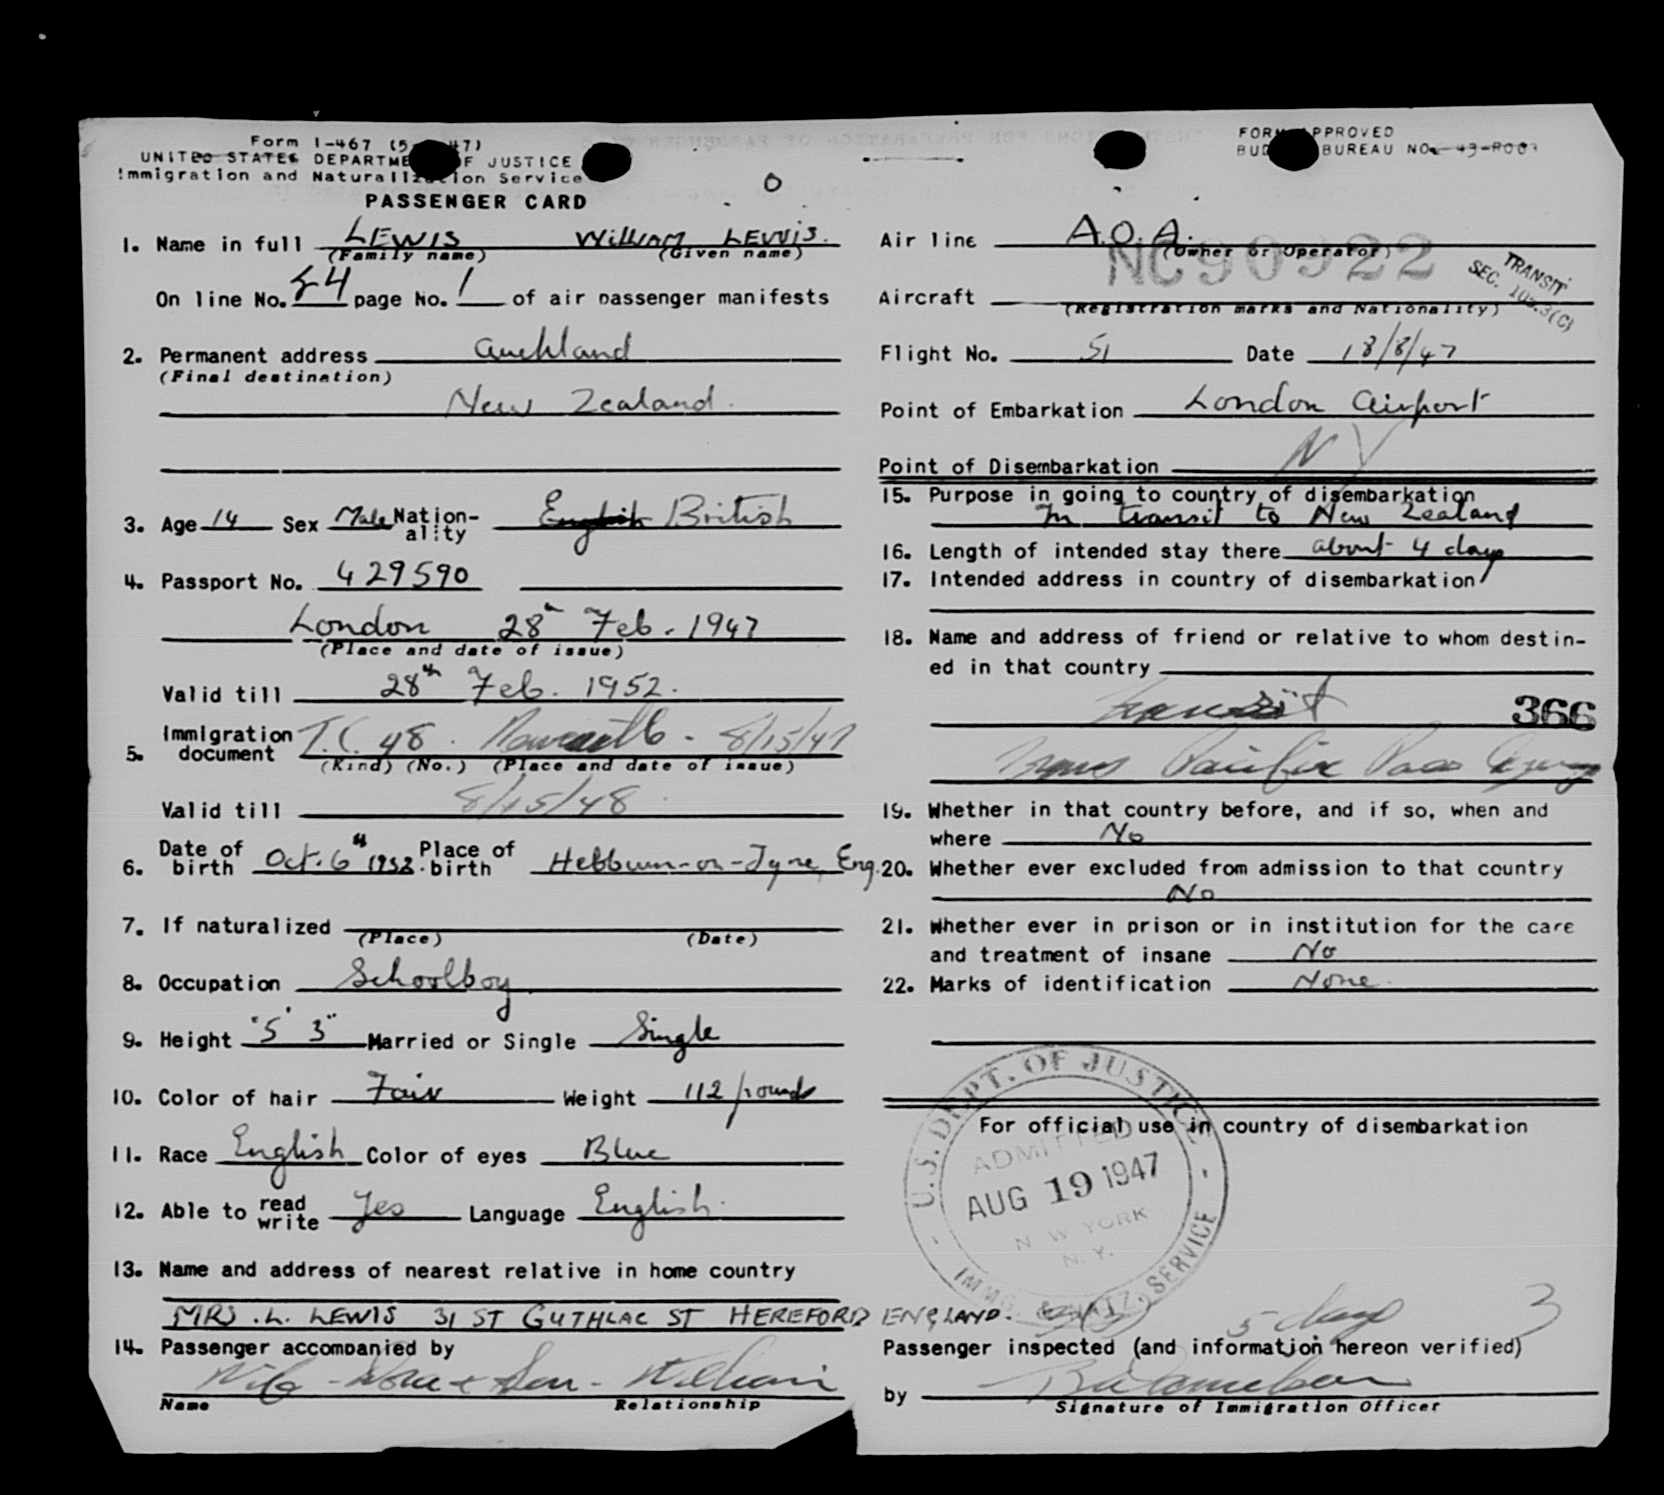 Form I-467 (5 47)
UNITED STATES DEPARTME OF JUSTICE
Immigration and Naturalization Service
PASSENGER CARD
FORM APPROVED
BUD BUREAU NO. 43-R003
O
1. Name in full LEWIS WILLIAM LEWIS.
(Family name) (Given name)
On line No. 24 page No. 1 of air passenger manifests
2. Permanent address Auckland
(Final destination)
New Zealand.
3. Age 14 Sex Male Nation-ality English British
4. Passport No. 429590
London 28th Feb. 1947
(Place and date of issue)
Valid till 28th Feb. 1952.
5. Immigration document T.C. 48. Newcastle - 8/15/47
(Kind) (No.) (Place and date of issue)
Valid till 8/15/48
6. Date of birth Oct. 6th 1932. Place of birth Hebburn-on-Tyne, Eng.
7. If naturalized
(Place) (Date)
8. Occupation Schoolboy
9. Height 5' 3" Married or Single Single
10. Color of hair Fair Weight 112 pounds
11. Race English Color of eyes Blue
12. Able to read write Yes Language English.
13. Name and address of nearest relative in home country
MRS. L. LEWIS 31 ST GUTHLAC ST HEREFORD ENGLAND.
14. Passenger accompanied by
Son - William
Name Relationship
Air line A.O.A.
(Owner or Operator)
NC90922
TRANSIT
SEC. 103.3(C)
Aircraft
(Registration marks and Nationality)
Flight No. 51 Date 18/8/47
Point of Embarkation London Airport
Point of Disembarkation NY
15. Purpose in going to country of disembarkation
In transit to New Zealand
16. Length of intended stay there about 4 days
17. Intended address in country of disembarkation
18. Name and address of friend or relative to whom destin-
ed in that country
transit 366
Pacific
19. Whether in that country before, and if so, when and
where No
20. Whether ever excluded from admission to that country
No
21. Whether ever in prison or in institution for the care
and treatment of insane No
22. Marks of identification None.
For official use in country of disembarkation
U.S. DEPT. OF JUSTICE
ADMITTED
AUG 19 1947
NEW YORK
N.Y.
IMMG. & NATZ. SERVICE
5 days 3
Passenger inspected (and information hereon verified)
by
Signature of Immigration Officer